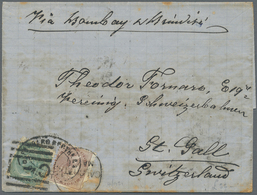 Via Bombay & Brindisi
Theodor Fornaro, Esqre
Vereinig. Schweizerbahnen
St. Gall
Switzerland